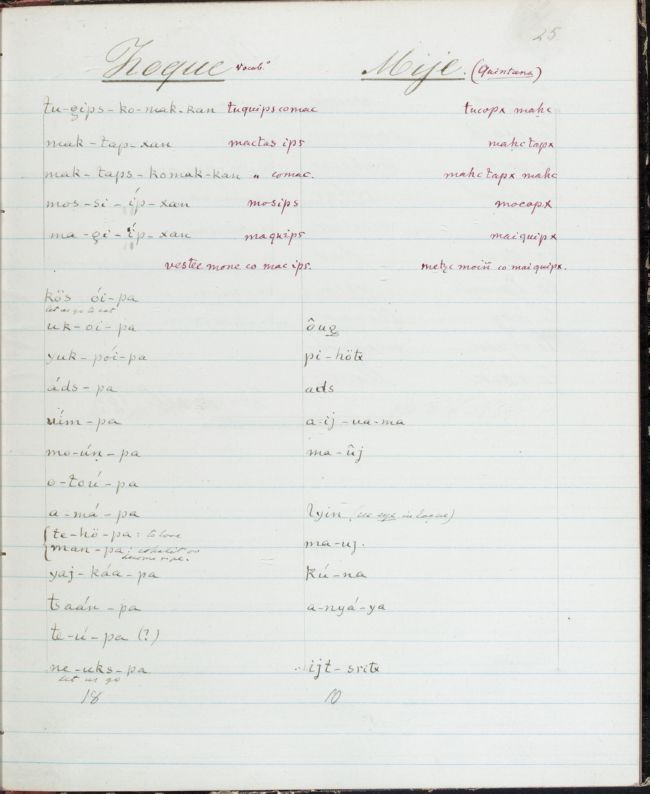 25
Zoque Vocab.° Mije. (Quintana)
tu-gips-ko-mak-xan tuquipscomac tucopx mahc
mak-tap-xan mactas ips mahctapx
mak-taps-komak-kan " comac. mahctapx mahc
mos-si-íp-xan mosips mocopx
ma-gi-íp-xan maquips maiquipx
vestec mone co mac ips. metzc moiñ co maiquipx.
kös ói-pa
let us go to eat
uk-oi-pa ôug
yuk-pói-pa pi-hötx
áds-pa ads
uím-pa a-ij-ua-ma
mo-úṇ-pa ma-ûj
o-toú-pa
a-má-pa lyiñ (see eye in Zoque)
te-hö-pa: to love
man-pa: ma-uj.
yaj-káa-pa kú-na
tsaán-pa a-nyá-ya
te-ú-pa (?)
ne-uks-pa ijt-sritx
let us go
18 10